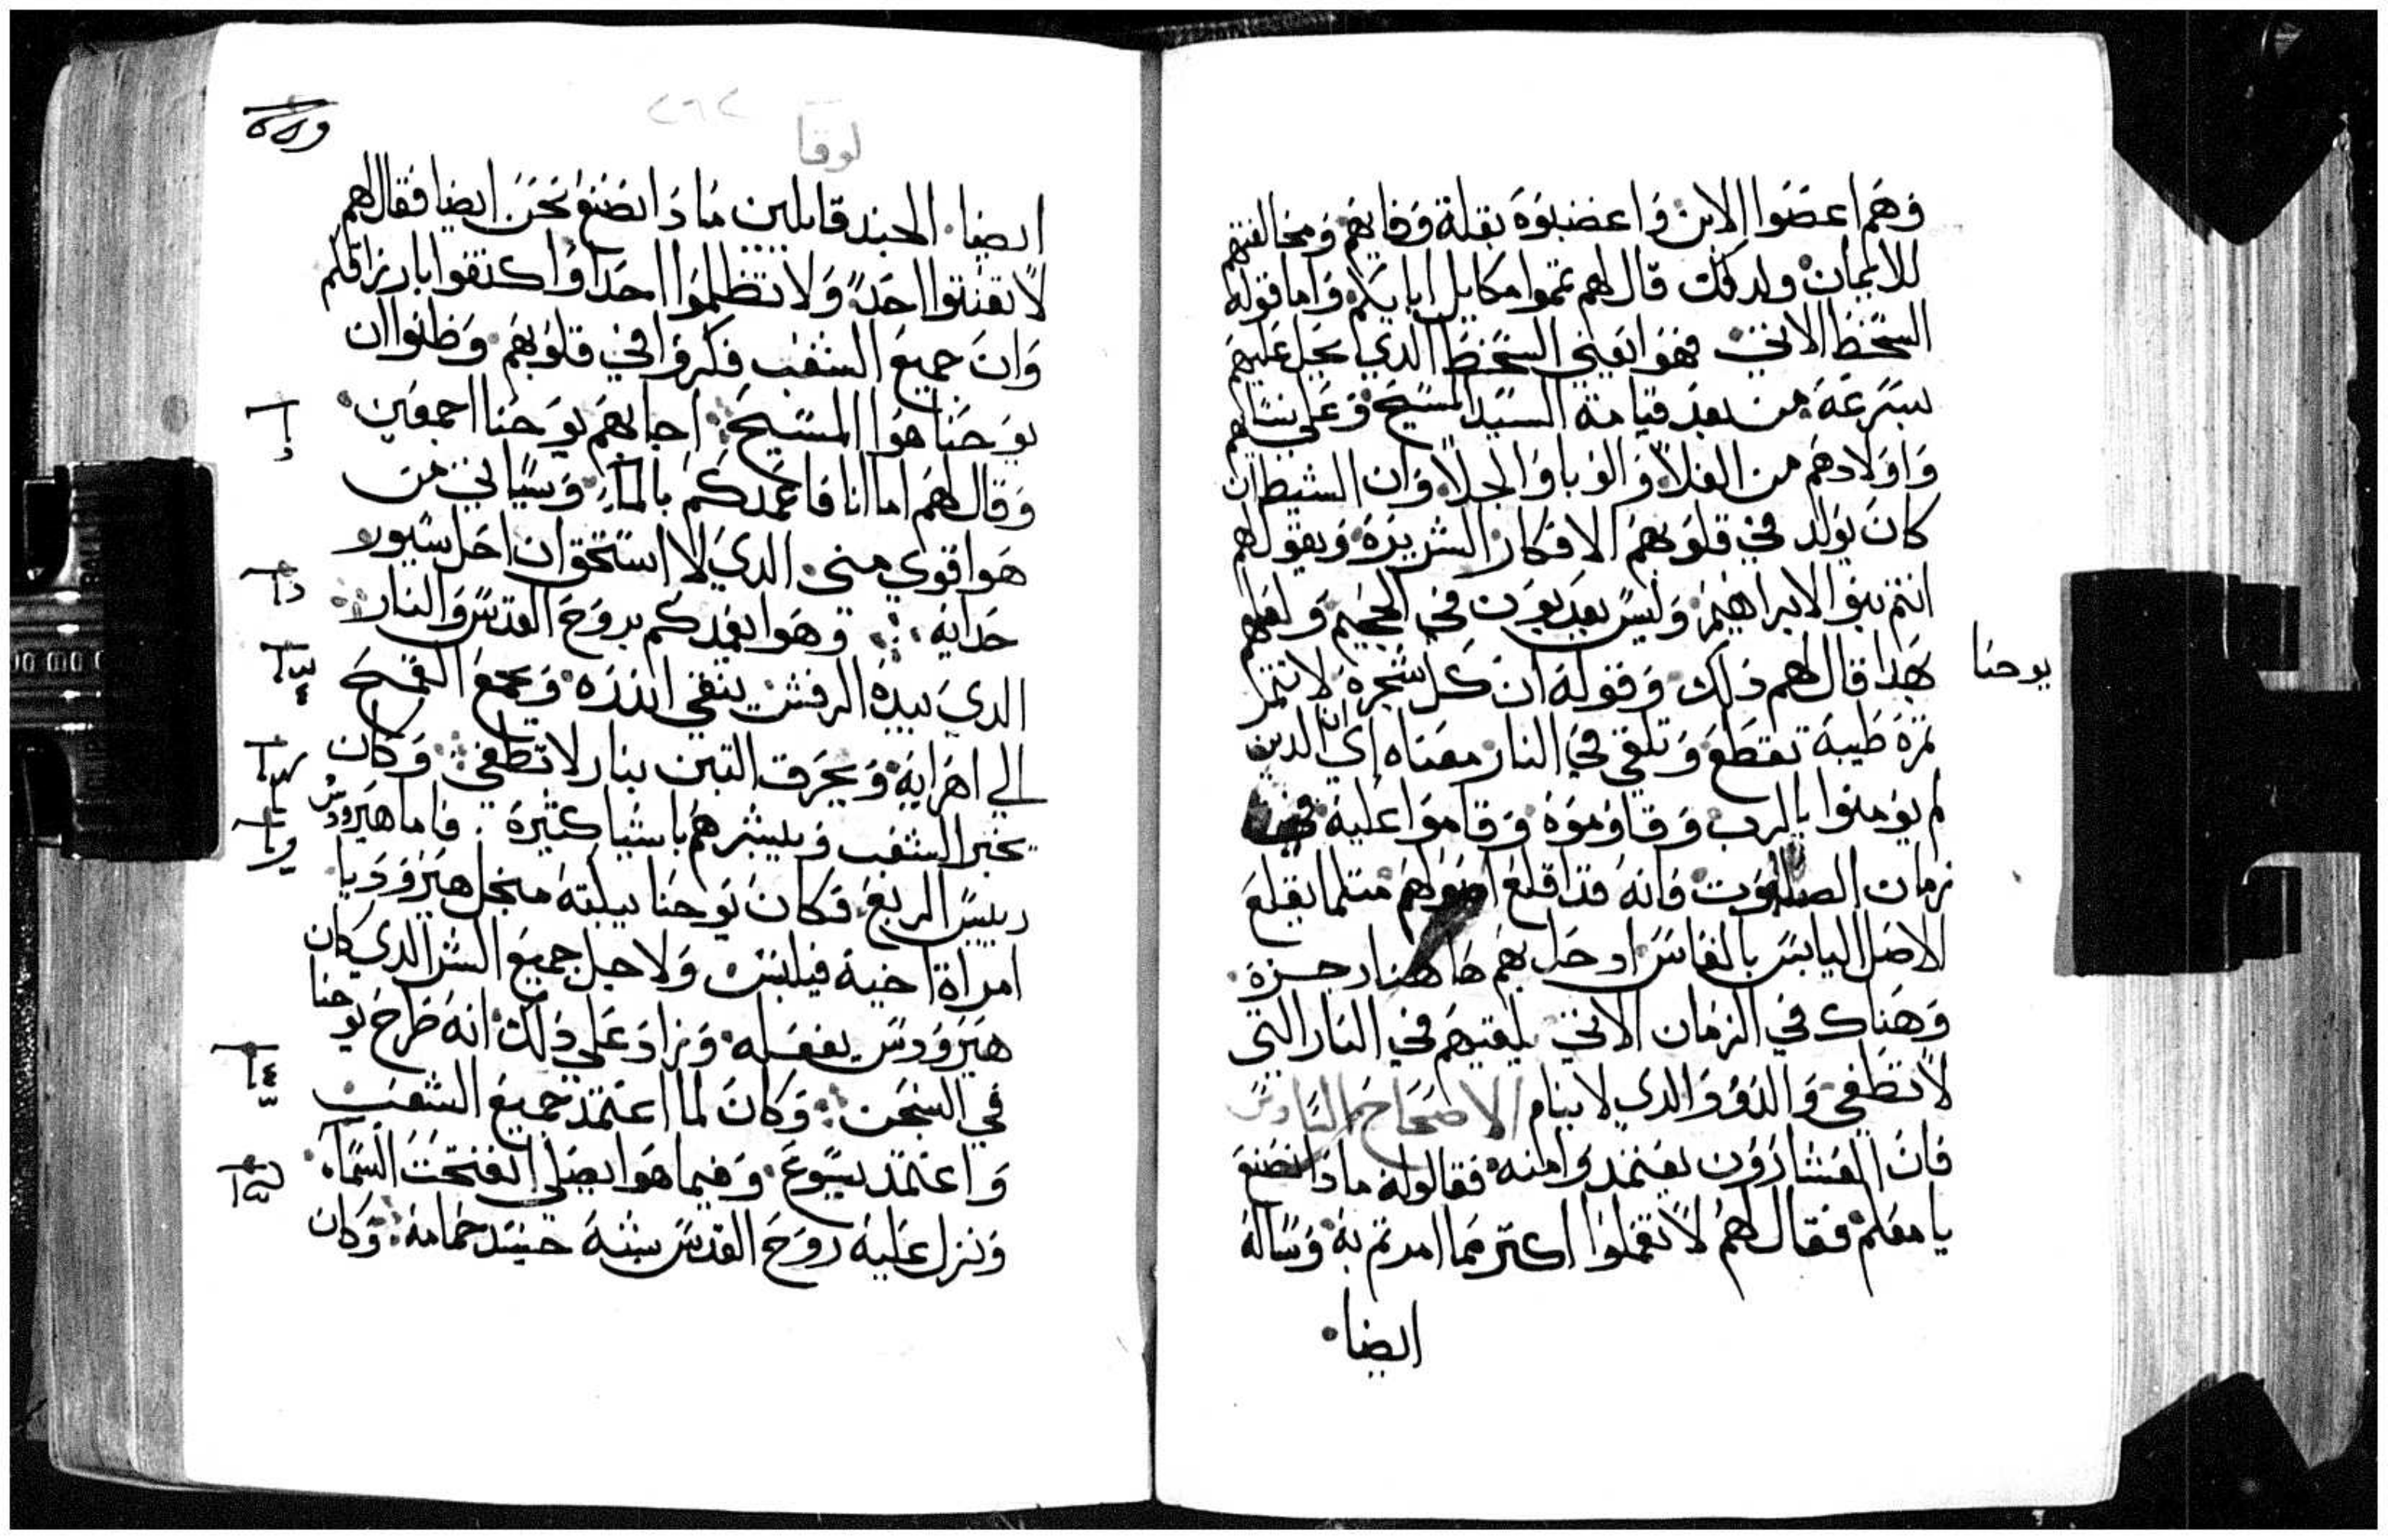 وهم اعضوا الابن واعضبوه بقلة وفايهم ومخالفتهم
للايمان ولدلك قال لهم تمموا مكاييل ابايكم واما قوله
السخط الاتي فهوا يعني السخط الدي يحل عليهم
بسرعه من بعد قيامة السيد المسيح وعلى نسايهم
واولادهم من الغلا والوبا والجلا وان الشيطان
كان يولد في قلوبهم الافكار الشريره ويقول لهم
انتم بنوا لابراهيم وليس يعدبون في الجحيم ولعلهم
بهدا قال لهم دلك وقوله ان كل شجره لا تتمر
تمرة طيبة تقطع وتلقي في النار معناه اي ان الدين
لم يومنوا بالرب وقاوموه وقاموا عليه في
زمان الصلبوت فانه قد اقلع اصولهم متلما يقلع
الاصل اليابس بالفاس اوحل بهم هاهنا رجزه
وهناك في الزمان الاتي يلقيهم في النار التي
لا تطفي والدود الدي لا ينام الاصحاح السادس
فان العشارون يعتمدوا منه فقالوا له مادا نصنع
يا معلم فقال لهم لا تعملوا اكتر مما امرتم به وساله
ايضا
يوحنا
لوقا
٢٦٢
ايضا الجند قايلين مادا نصنع نحن ايضا فقال لهم
لا تعنتوا احدا ولا تظلموا احدا واكتفوا بارزاقكم
وان جميع الشعب فكروا في قلوبهم وظنوا ان
يوحنا هوا المسيح اجابهم يوحنا اجمعين
وقال لهم اما انا فاعمدكم بالماء وسياتي من
هوا قوي مني الدي لا استحق ان احل سيور
حدايه وهوا يعمدكم بروح القدس والنار
الدي بيده الرفش ينقي اندره ويجمع القمح
الي اهرايه ويحرق التبن بنار لا تطفي وكان
يخبر الشعب ويبشرهم باشيا كتيرة فاما هيرودس
رييس الربع فكان يوحنا يبكته منجل هيروديا
امراة اخيه فيلبس ولاجل جميع الشر الدي كان
هيرودس يفعله وزاد علي دلك انه طرح يوحنا
في السجن وكان لما اعتمد جميع الشعب
واعتمد يسوع وفيما هوا يصلي انفتحت السماء
ونزل عليه روح القدس شبه جسد حمامه وكان